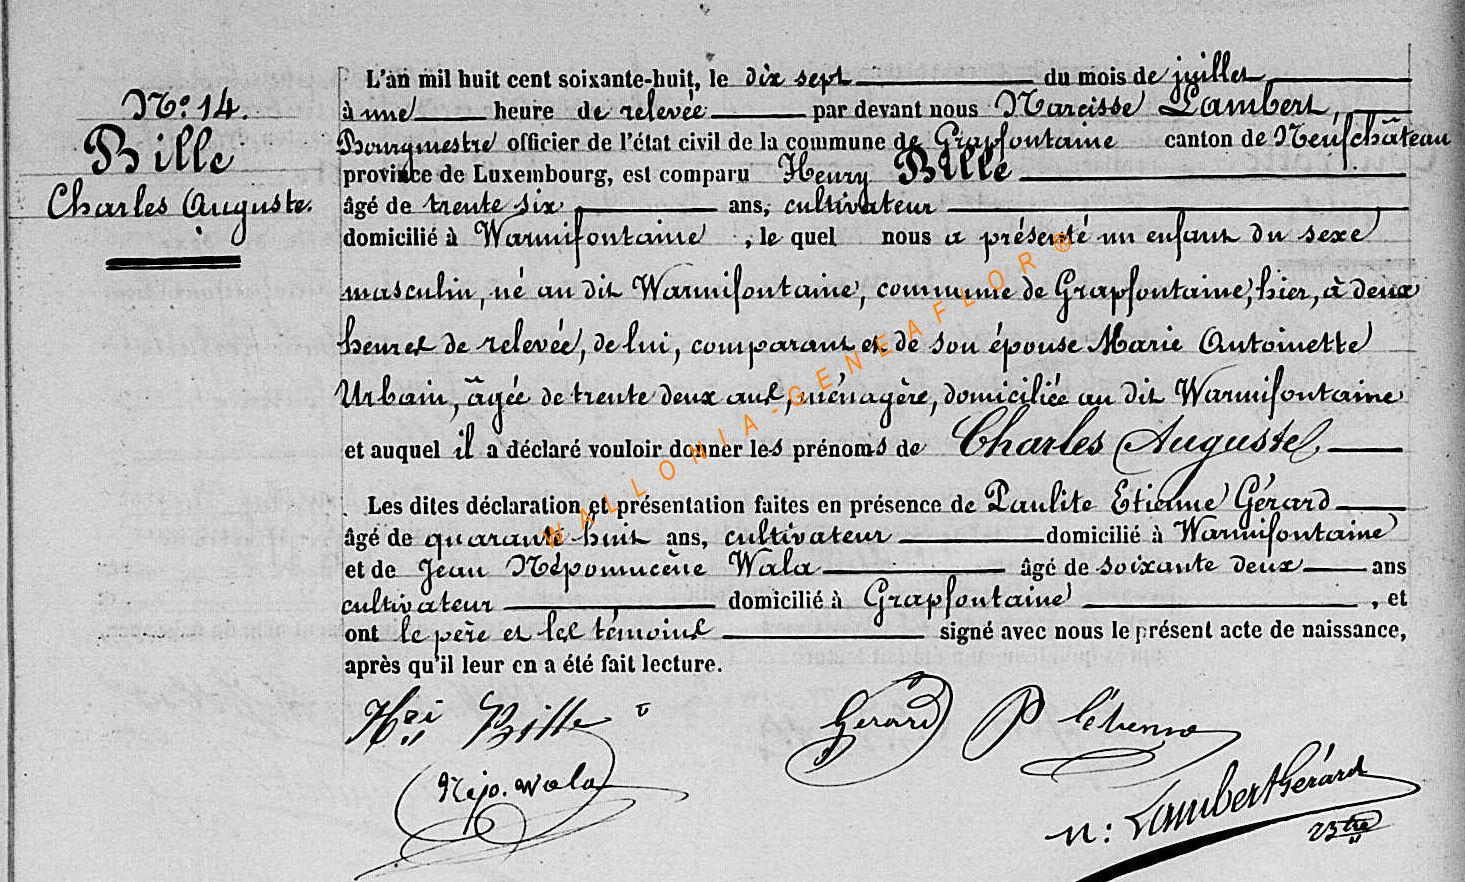 N.o 14.
Bille
Charles Auguste.
L'an mil huit cent soixante-huit, le dix sept du mois de juillet
à une heure de relevée par devant nous Narcisse Lambert,
Bourgmestre officier de l'état civil de la commune de Grapfontaine canton de Neufchâteau
province de Luxembourg, est comparu Henry Bille
âgé de trente six ans, cultivateur
domicilié à Warmifontaine, le quel nous a présenté un enfant du sexe
masculin, né au dit Warmifontaine, commune de Grapfontaine, hier, à deux
heures de relevée, de lui, comparant et de son épouse Marie Antoinette
Urbain, âgée de trente deux ans, ménagère, domiciliée au dit Warmifontaine
et auquel il a déclaré vouloir donner les prénoms de Charles Auguste
Les dites déclaration et présentation faites en présence de Paulite Etienne Gérard
âgé de quarante huit ans, cultivateur domicilié à Warmifontaine
et de Jean Népomucène Wala âgé de soixante deux ans
cultivateur domicilié à Grapfontaine, et
ont le père et les témoins signé avec nous le présent acte de naissance,
après qu'il leur en a été fait lecture.
Hri Bille
Gerard P Etienne
Népo. Wala
N: Lambert Gérard
Bstre
WALLONIA-GENEAFLOR®